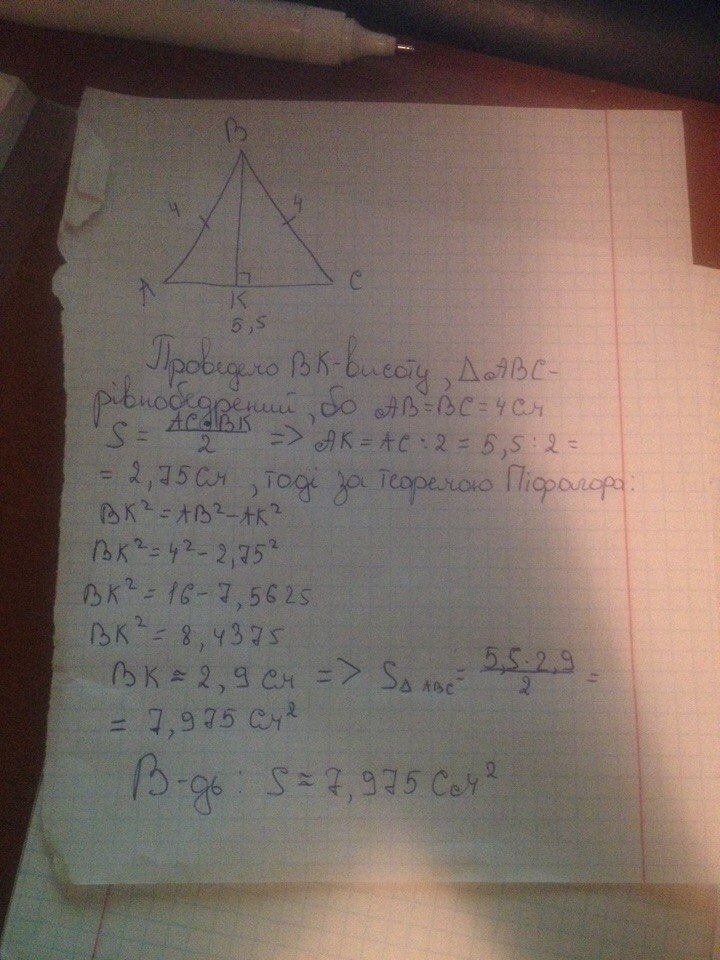 B
4 4
A K C
5,5
Проведемо BK-висоту, △ABC-
рівнобедрений, бо AB=BC=4см
S = AC·BK/2 => AK=AC:2=5,5:2=
= 2,75см, тоді за теоремою Піфагора:
BK²=AB²-AK²
BK²=4²-2,75²
BK²=16-7,5625
BK²=8,4375
BK≈2,9см => S△ABC=5,5·2,9/2=
= 7,975см²
В-дь: S≈7,975см²